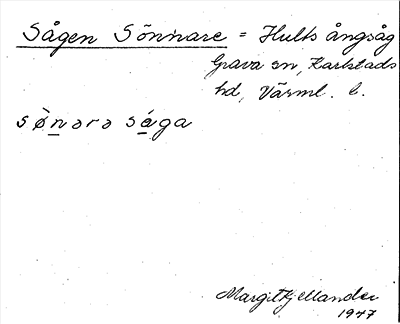 Sågen Sönnare = Hults ångsåg
Grava sn, Karlstads
hd, Värml. l.
sø̀nərə sága
Margit Kjellander
1947